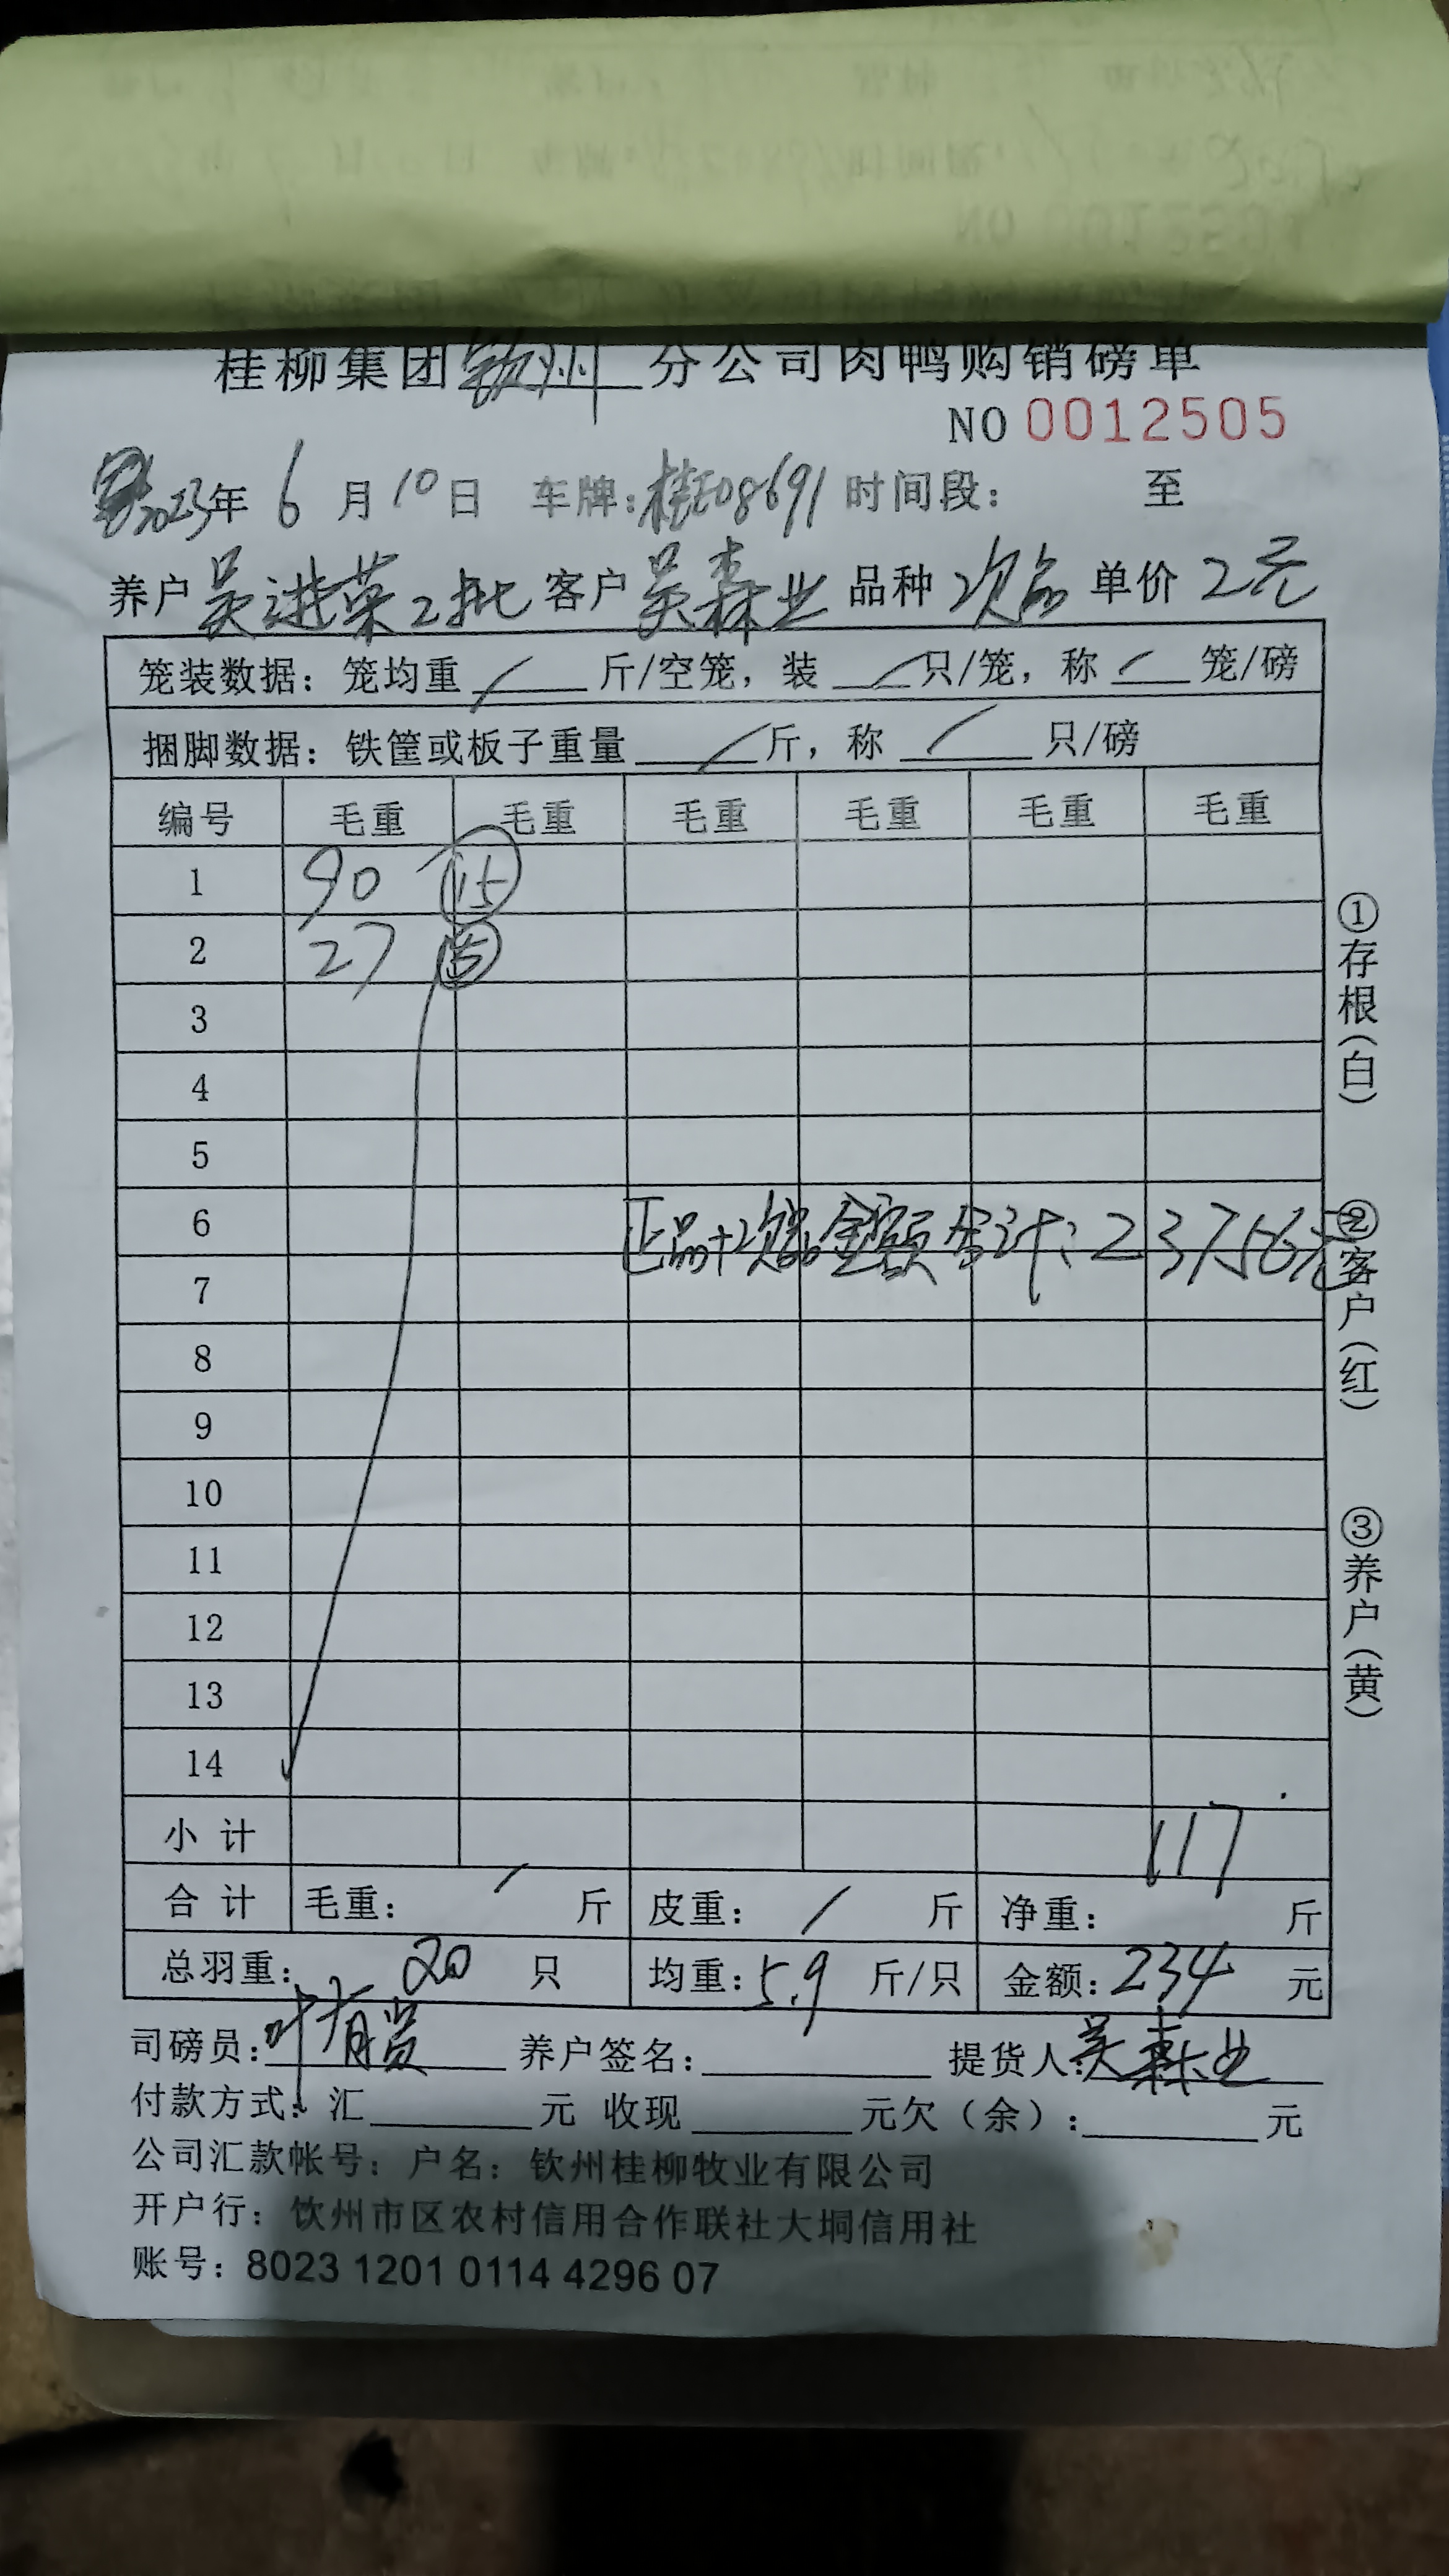 桂柳集团钦州分公司肉鸭购销磅单
NO 0012505
2023年 6 月 10 日 车牌:桂E08691 时间段: 至
养户 吴进荣2批 客户 吴森业 品种 次品 单价 2元
笼装数据: 笼均重 / 斤/空笼, 装 / 只/笼, 称 / 笼/磅
捆脚数据: 铁筐或板子重量 / 斤, 称 / 只/磅
编号 毛重 毛重 毛重 毛重 毛重 毛重
1 90 15
2 27 5
3
4
5
6
正品+次品金额合计: 23756元
7
8
9
10
11
12
13
14
小计 117
合计 毛重: / 斤 皮重: / 斤 净重: 斤
总羽重: 20 只 均重: 5.9 斤/只 金额: 234 元
司磅员: 叶有贤 养户签名: 提货人: 吴森业
付款方式: 汇 元 收现 元欠(余): 元
公司汇款帐号: 户名: 钦州桂柳牧业有限公司
开户行: 钦州市区农村信用合作联社大垌信用社
账号: 8023 1201 0114 4296 07
①存根(白)
②客户(红)
③养户(黄)